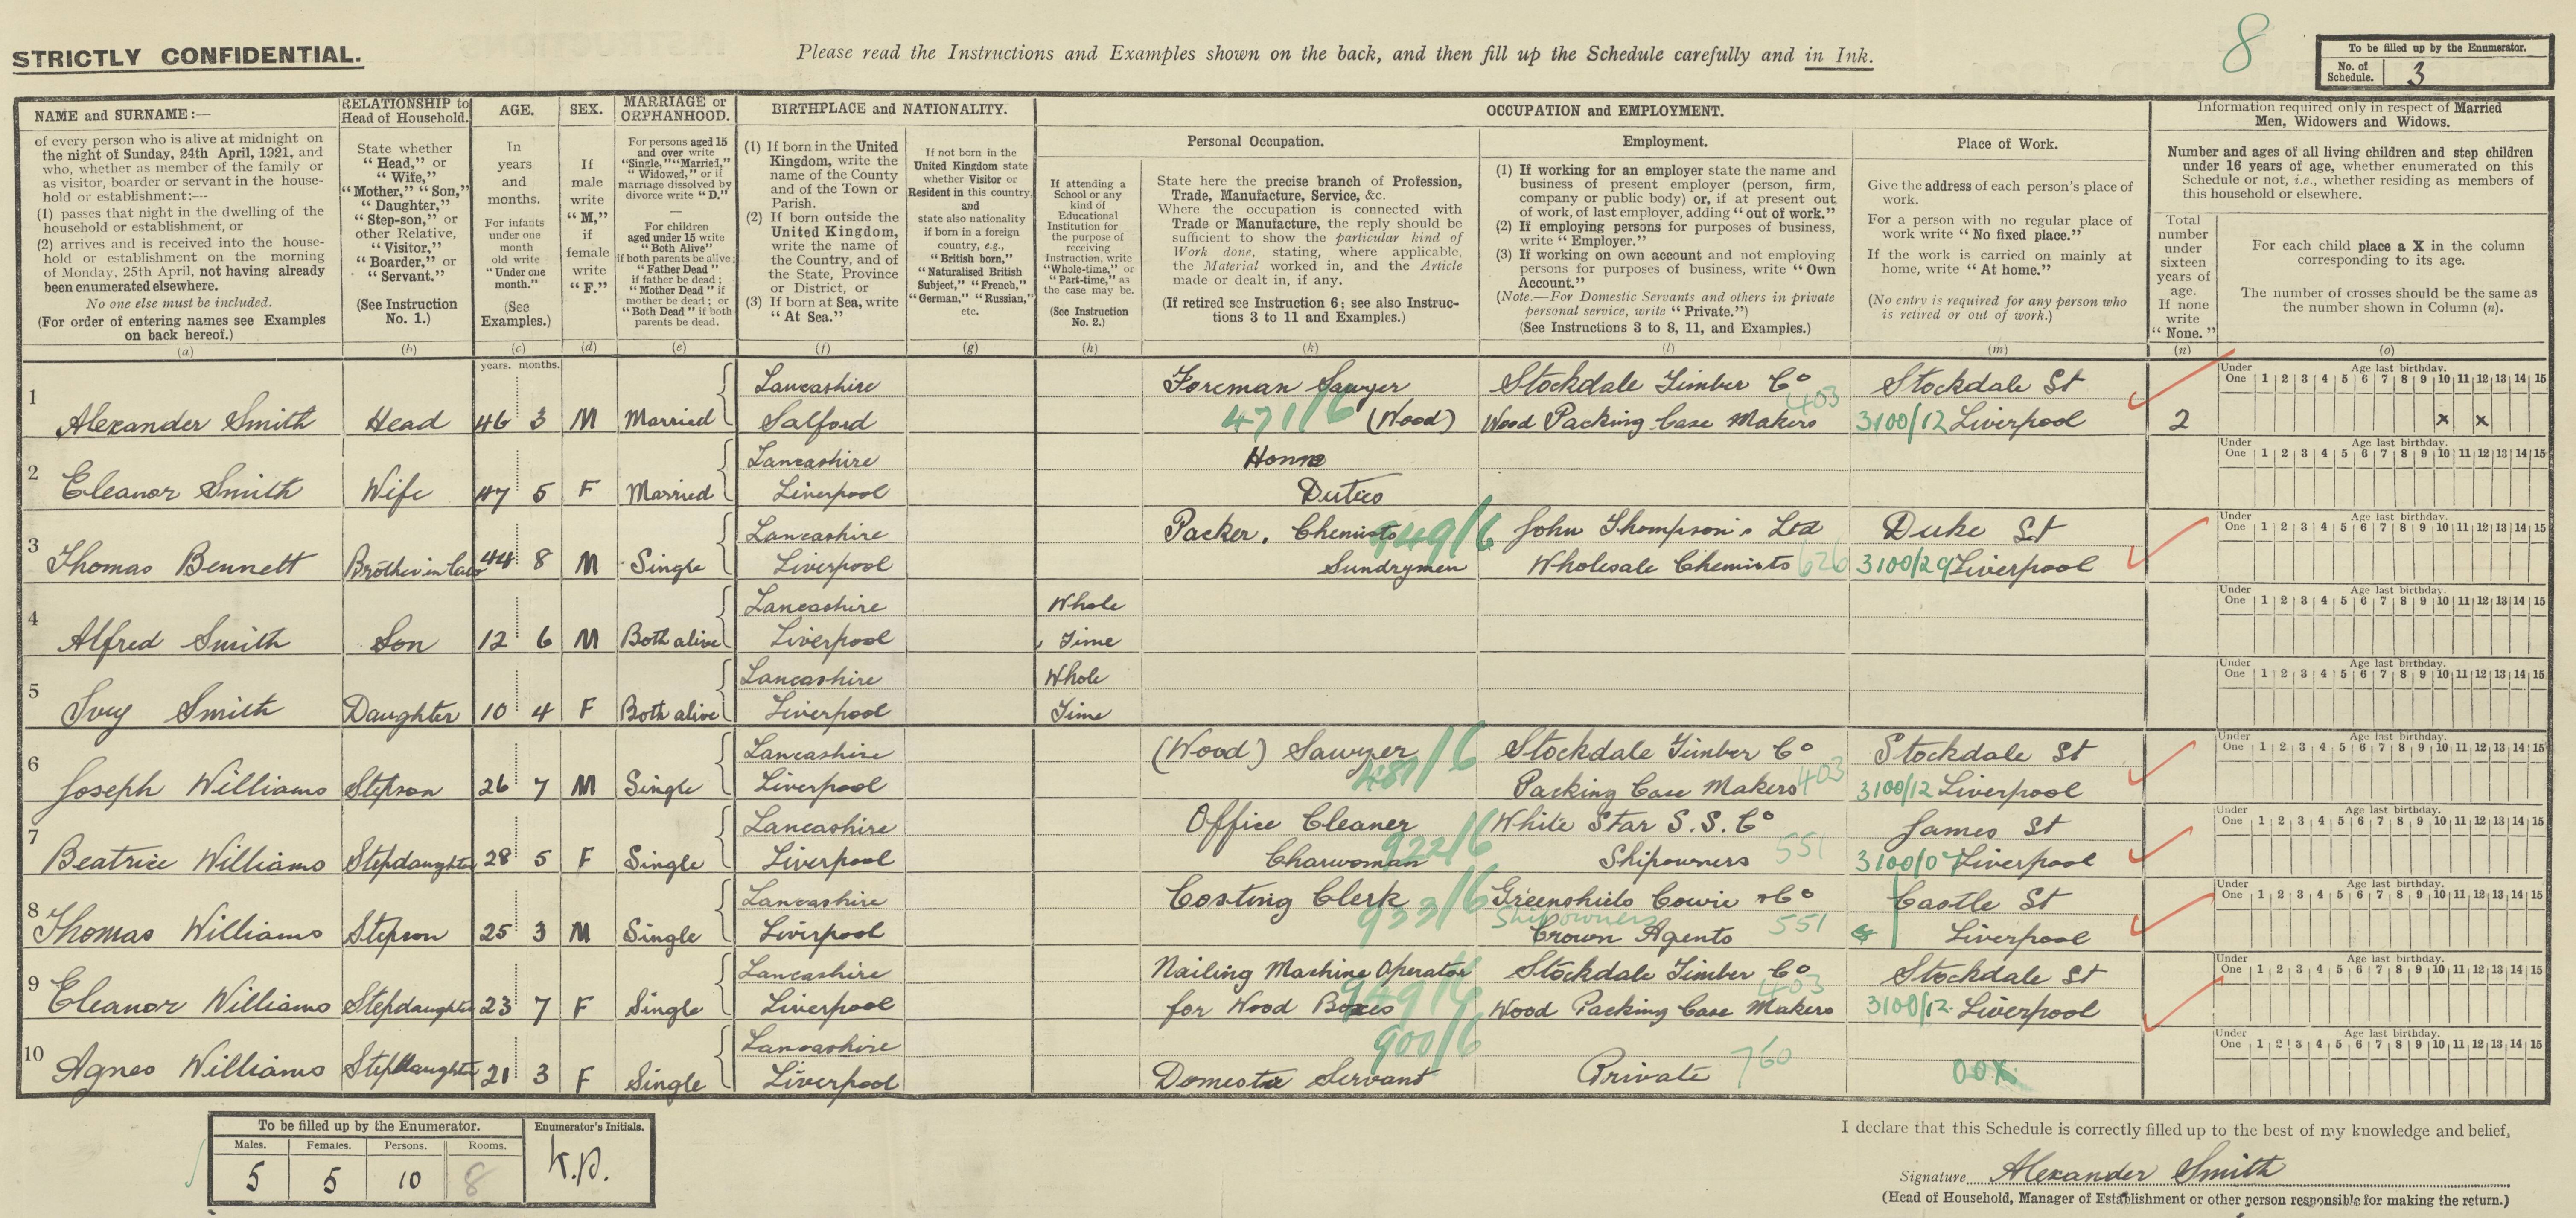 8
STRICTLY CONFIDENTIAL.
Please read the Instructions and Examples shown on the back, and then fill up the Schedule carefully and in Ink.
To be filled up by the Enumerator.
No. of Schedule. 3
NAME and SURNAME:—
of every person who is alive at midnight on
the night of Sunday, 24th April, 1921, and
who, whether as member of the family or
as visitor, boarder or servant in the house-
hold or establishment:—
(1) passes that night in the dwelling of the
household or establishment, or
(2) arrives and is received into the house-
hold or establishment on the morning
of Monday, 25th April, not having already
been enumerated elsewhere.
No one else must be included.
(For order of entering names see Examples
on back hereof.)
(a)
RELATIONSHIP to
Head of Household.
State whether
"Head," or
"Wife,"
"Mother," "Son,"
"Daughter,"
"Step-son," or
other Relative,
"Visitor,"
"Boarder," or
"Servant."
(See Instruction
No. 1.)
(b)
AGE.
In
years
and
months.
For infants
under one
month
old write
"Under one
month."
(See
Examples.)
(c)
SEX.
If
male
write
"M,"
if
female
write
"F."
(d)
MARRIAGE or
ORPHANHOOD.
For persons aged 15
and over write
"Single," "Married,"
"Widowed," or if
marriage dissolved by
divorce write "D."
—
For children
aged under 15 write
"Both Alive"
if both parents be alive;
"Father Dead"
if father be dead;
"Mother Dead" if
mother be dead; or
"Both Dead" if both
parents be dead.
(e)
BIRTHPLACE and NATIONALITY.
(1) If born in the United
Kingdom, write the
name of the County
and of the Town or
Parish.
(2) If born outside the
United Kingdom,
write the name of
the Country, and of
the State, Province
or District, or
(3) If born at Sea, write
"At Sea."
(f)
If not born in the
United Kingdom state
whether Visitor or
Resident in this country,
and
state also nationality
if born in a foreign
country, e.g.,
"British born,"
"Naturalised British
Subject," "French,"
"German," "Russian,"
etc.
(g)
OCCUPATION and EMPLOYMENT.
Personal Occupation.
If attending a
School or any
kind of
Educational
Institution for
the purpose of
receiving
Instruction, write
"Whole-time," or
"Part-time," as
the case may be.
(See Instruction
No. 2.)
(h)
State here the precise branch of Profession,
Trade, Manufacture, Service, &c.
Where the occupation is connected with
Trade or Manufacture, the reply should be
sufficient to show the particular kind of
Work done, stating, where applicable,
the Material worked in, and the Article
made or dealt in, if any.
(If retired see Instruction 6; see also Instruc-
tions 3 to 11 and Examples.)
(k)
Employment.
(1) If working for an employer state the name and
business of present employer (person, firm,
company or public body) or, if at present out
of work, of last employer, adding "out of work."
(2) If employing persons for purposes of business,
write "Employer."
(3) If working on own account and not employing
persons for purposes of business, write "Own
Account."
(Note.—For Domestic Servants and others in private
personal service, write "Private.")
(See Instructions 3 to 8, 11, and Examples.)
(l)
Place of Work.
Give the address of each person's place of
work.
For a person with no regular place of
work write "No fixed place."
If the work is carried on mainly at
home, write "At home."
(No entry is required for any person who
is retired or out of work.)
(m)
Information required only in respect of Married
Men, Widowers and Widows.
Number and ages of all living children and step children
under 16 years of age, whether enumerated on this
Schedule or not, i.e., whether residing as members of
this household or elsewhere.
Total
number
under
sixteen
years of
age.
If none
write
"None."
(n)
For each child place a X in the column
corresponding to its age.
The number of crosses should be the same as
the number shown in Column (n).
(o)
years. months.
Under One Age last birthday. 1 2 3 4 5 6 7 8 9 10 11 12 13 14 15
1 Lancashire Foreman Sawyer Stockdale Timber Co Stockdale St
Alexander Smith Head 46 3 M Married Salford 471/6 (Wood) Wood Packing Case Makers 403 3100/12 Liverpool 2 x x
Under One Age last birthday. 1 2 3 4 5 6 7 8 9 10 11 12 13 14 15
2 Lancashire Home
Eleanor Smith Wife 47 5 F Married Liverpool Duties
Under One Age last birthday. 1 2 3 4 5 6 7 8 9 10 11 12 13 14 15
3 Lancashire Packer. Chemists 949/6 John Thompson's Ltd Duke St
Thomas Bennett Brother in law 44 8 M Single Liverpool Sundrymen Wholesale Chemists 626 3100/29 Liverpool
Under One Age last birthday. 1 2 3 4 5 6 7 8 9 10 11 12 13 14 15
4 Lancashire Whole
Alfred Smith Son 12 6 M Both alive Liverpool Time
Under One Age last birthday. 1 2 3 4 5 6 7 8 9 10 11 12 13 14 15
5 Lancashire Whole
Ivy Smith Daughter 10 4 F Both alive Liverpool Time
Under One Age last birthday. 1 2 3 4 5 6 7 8 9 10 11 12 13 14 15
6 Lancashire (Wood) Sawyer Stockdale Timber Co Stockdale St
Joseph Williams Stepson 26 7 M Single Liverpool Packing Case Makers 403 3100/12 Liverpool
Under One Age last birthday. 1 2 3 4 5 6 7 8 9 10 11 12 13 14 15
7 Lancashire Office Cleaner White Star S.S. Co James St
Beatrice Williams Stepdaughter 28 5 F Single Liverpool Charwoman 922/6 Shipowners 551 3100/07 Liverpool
Under One Age last birthday. 1 2 3 4 5 6 7 8 9 10 11 12 13 14 15
8 Lancashire Costing Clerk Greenshields Cowie & Co Castle St
Thomas Williams Stepson 25 3 M Single Liverpool 933/6 Shipowners Crown Agents 551 Liverpool
Under One Age last birthday. 1 2 3 4 5 6 7 8 9 10 11 12 13 14 15
9 Lancashire Nailing Machine Operator Stockdale Timber Co Stockdale St
Eleanor Williams Stepdaughter 23 7 F Single Liverpool for Wood Boxes 949/6 Wood Packing Case Makers 403 3100/12. Liverpool
Under One Age last birthday. 1 2 3 4 5 6 7 8 9 10 11 12 13 14 15
10 Lancashire 900/6
Agnes Williams Stepdaughter 21 3 F Single Liverpool Domestic Servant Private 760
To be filled up by the Enumerator. Enumerator's Initials.
Males. Females. Persons. Rooms.
5 5 10 8
I declare that this Schedule is correctly filled up to the best of my knowledge and belief,
Signature Alexander Smith
(Head of Household, Manager of Establishment or other person responsible for making the return.)